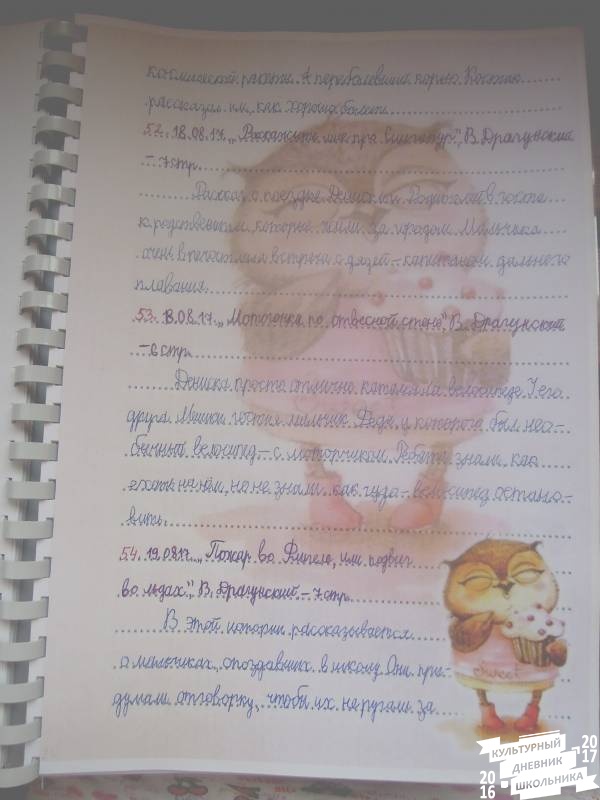 космической ракете. А переболевший корью Костик
рассказал им, как хорошо болеть.
52. 18.08.17. „Расскажите мне про Сингапур", В. Драгунский
– 7 стр.
Рассказ о поездке Дениски и родителей в гости
к родственникам, которые жили за городом. Мальчика
очень впечатлила встреча с дядей – капитаном дальнего
плавания.
53. 18.08.17. „Мотогонки по отвесной стене", В. Драгунский
– 6 стр.
Дениска просто отлично катался на велосипеде. У его
друга Мишки гостил мальчик Федя, у которого был нео–
бычный велосипед – с моторчиком. Ребята знали как
ехать на нём, но не знали как чудо – велосипед остано–
вить.
54. 19.08.17. „Пожар во флигеле, или подвиг
во льдах", В. Драгунский – 7 стр.
В этой истории рассказывается
о мальчиках, опоздавших в школу. Они при–
думали отговорку, чтобы их не ругали за
Sweet
КУЛЬТУРНЫЙ
ДНЕВНИК
ШКОЛЬНИКА
2016
2017